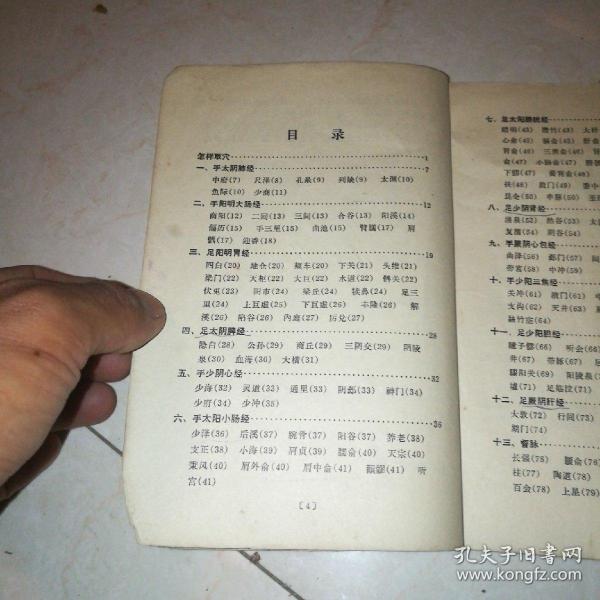 目 录
怎样取穴……1
一、手太阴肺经……7
中府(7) 尺泽(8) 孔最(9) 列缺(9) 太渊(10)
鱼际(10) 少商(11)
二、手阳明大肠经……12
商阳(12) 二间(13) 三间(13) 合谷(13) 阳溪(14)
偏历(15) 手三里(15) 曲池(15) 臂臑(16) 肩
髃(17) 迎香(18)
三、足阳明胃经……19
四白(20) 地仓(20) 颊车(20) 下关(21) 头维(21)
梁门(22) 天枢(22) 大巨(22) 水道(22) 髀关(22)
伏兔(23) 阴市(24) 梁丘(24) 犊鼻(24) 足三
里(24) 上巨虚(25) 下巨虚(25) 丰隆(26) 解
溪(26) 陷谷(26) 内庭(27) 厉兑(27)
四、足太阴脾经……28
隐白(28) 公孙(29) 商丘(29) 三阴交(29) 阴陵
泉(30) 血海(30) 大横(31)
五、手少阴心经……32
少海(32) 灵道(33) 通里(33) 阴郄(33) 神门(34)
少府(34) 少冲(35)
六、手太阳小肠经……36
少泽(36) 后溪(37) 腕骨(37) 阳谷(37) 养老(38)
支正(38) 小海(39) 肩贞(39) 臑俞(40) 天宗(40)
秉风(40) 肩外俞(41) 肩中俞(41) 颧髎(41) 听
宫(41)
〔4〕
七、足太阳膀胱经
睛明(43) 攒竹(43) 大杼
心俞(45)
胃俞(46) 三焦俞(46)
俞(47) 小肠俞(47)
八、足少阴肾经
涌泉(52) 然谷(53)
复溜(54) 阴谷(54)
九、手厥阴心包经
曲泽(57) 郄门(57)
劳宫(58) 中冲(59)
十、手少阳三焦经
关冲(61) 液门(61)
支沟(62) 天井(63)
丝竹空(64)
十一、足少阳胆经
瞳子髎(65) 听会(66)
井(67) 带脉(67)
膝阳关(69) 阳陵泉
墟(71) 足临泣(71)
十二、足厥阴肝经
大敦(72) 行间(73)
期门(74)
十三、督脉
长强(75) 腰俞(76)
柱(77) 陶道(78)
百会(78) 上星(79)
孔夫子旧书网
www.kongfz.com